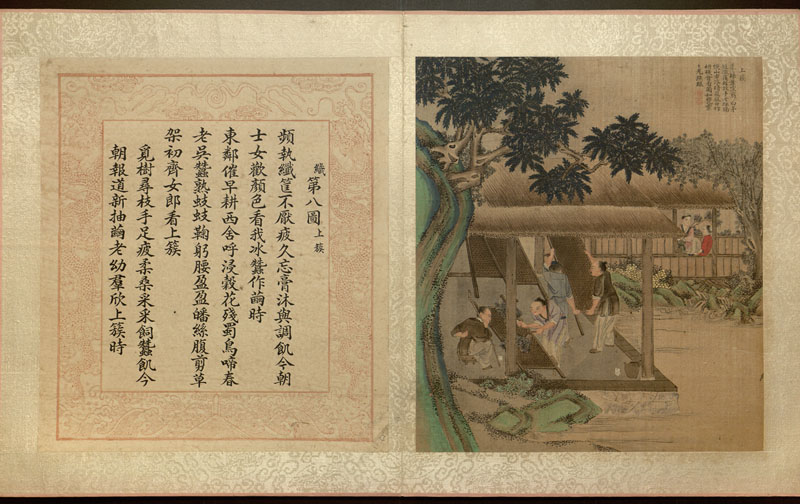 上簇
織第八圖上簇
頻執纖筐不厭疲久忘膏沐與調飢今朝
士女歡顏色看我冰蠶作繭時
東鄰催早耕西舍呼浸穀花殘蜀鳥啼春
老吳蠶熟蚑蚑鞠躬腰盈盈皤絲腹剪草
架初齊女郎看上簇
覓樹尋枝手足疲柔桑采采飼蠶飢今
朝報道新抽繭老幼羣欣上簇時